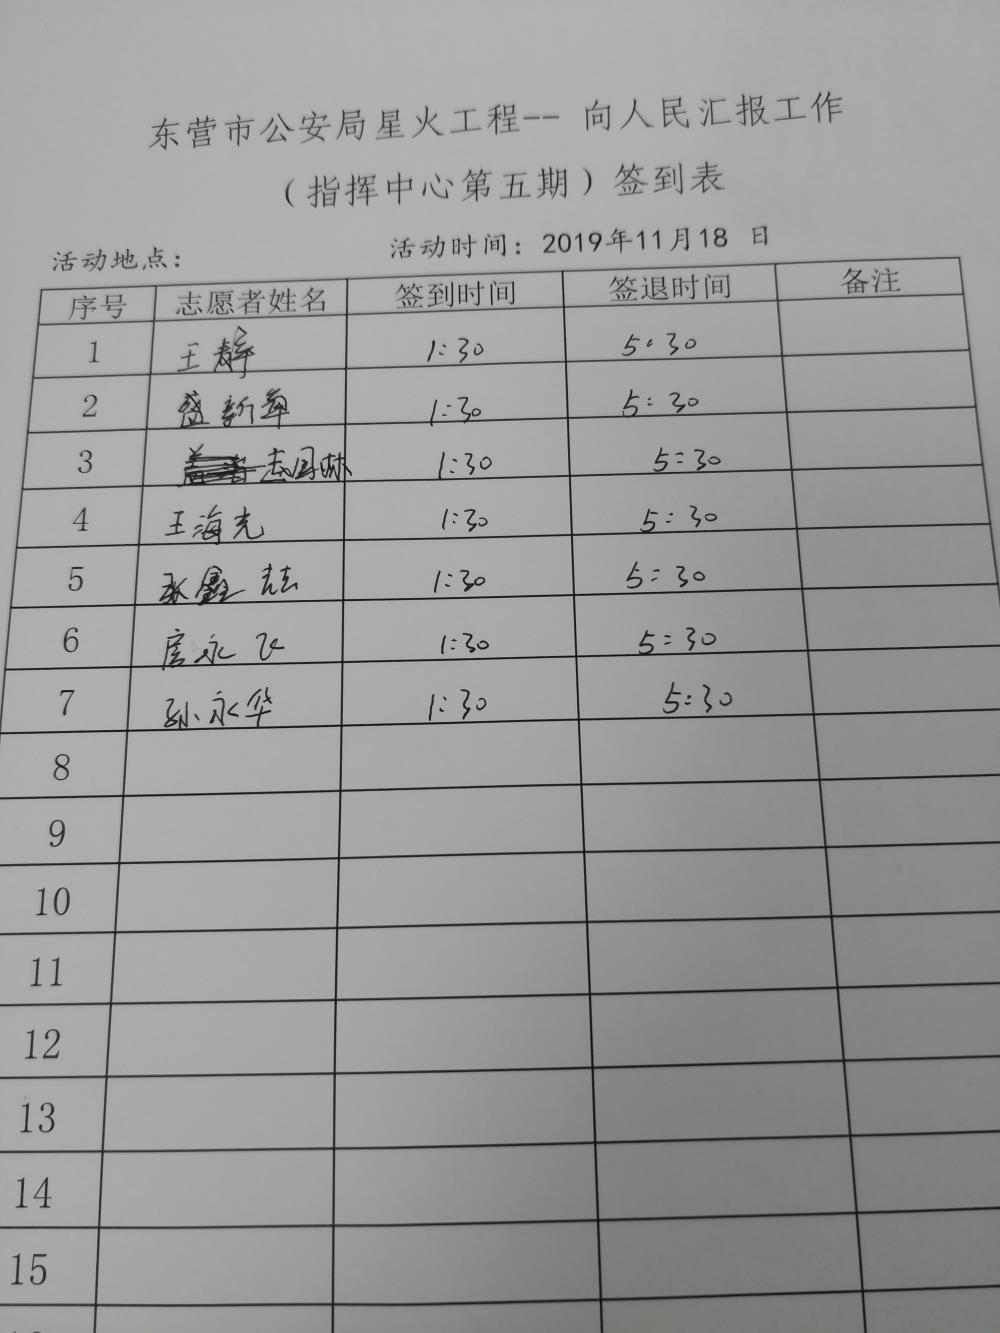 东营市公安局星火工程-- 向人民汇报工作
（指挥中心第五期）签到表
活动地点： 活动时间：2019年11月18 日
序号 志愿者姓名 签到时间 签退时间 备注
1 王静 1:30 5:30
2 盛新 1:30 5:30
3 1:30 5:30
4 王海克 1:30 5:30
5 鑫 1:30 5:30
6 房永飞 1:30 5:30
7 孙永华 1:30 5:30
8
9
10
11
12
13
14
15